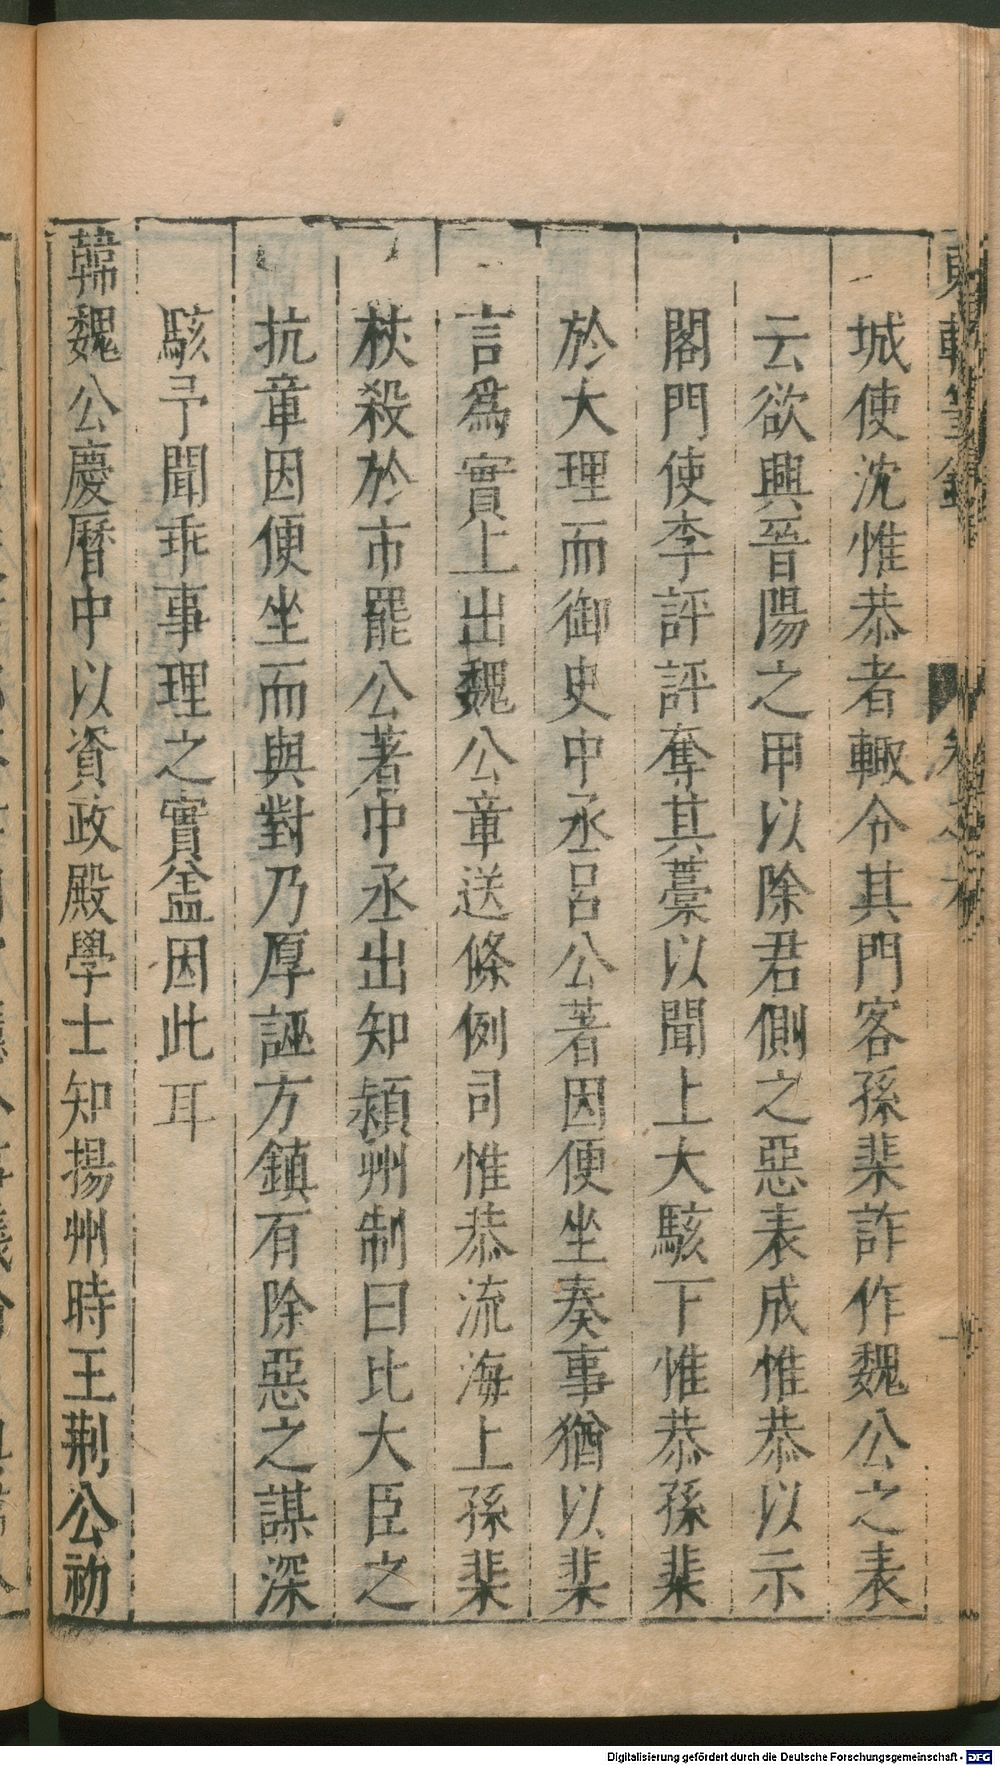 城使沈惟恭者輙令其門客孫棐詐作魏公之表
云欲興晉陽之甲以除君側之惡表成惟恭以示
閤門使李評評奪其藁以聞上大駭下惟恭孫棐
於大理而御史中丞呂公著因便坐奏事猶以棐
言爲實上出魏公章送條例司惟恭流海上孫棐
杖殺於市罷公著中丞出知潁州制曰比大臣之
抗章因便坐而與對乃厚誣方鎮有除惡之謀深
駭予聞乖事理之實盖因此耳
韓魏公慶曆中以資政殿學士知揚州時王荆公初
Digitalisierung gefördert durch die Deutsche Forschungsgemeinschaft - DFG